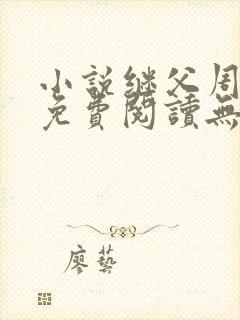 小説继父周
免費閱讀無
廖藝